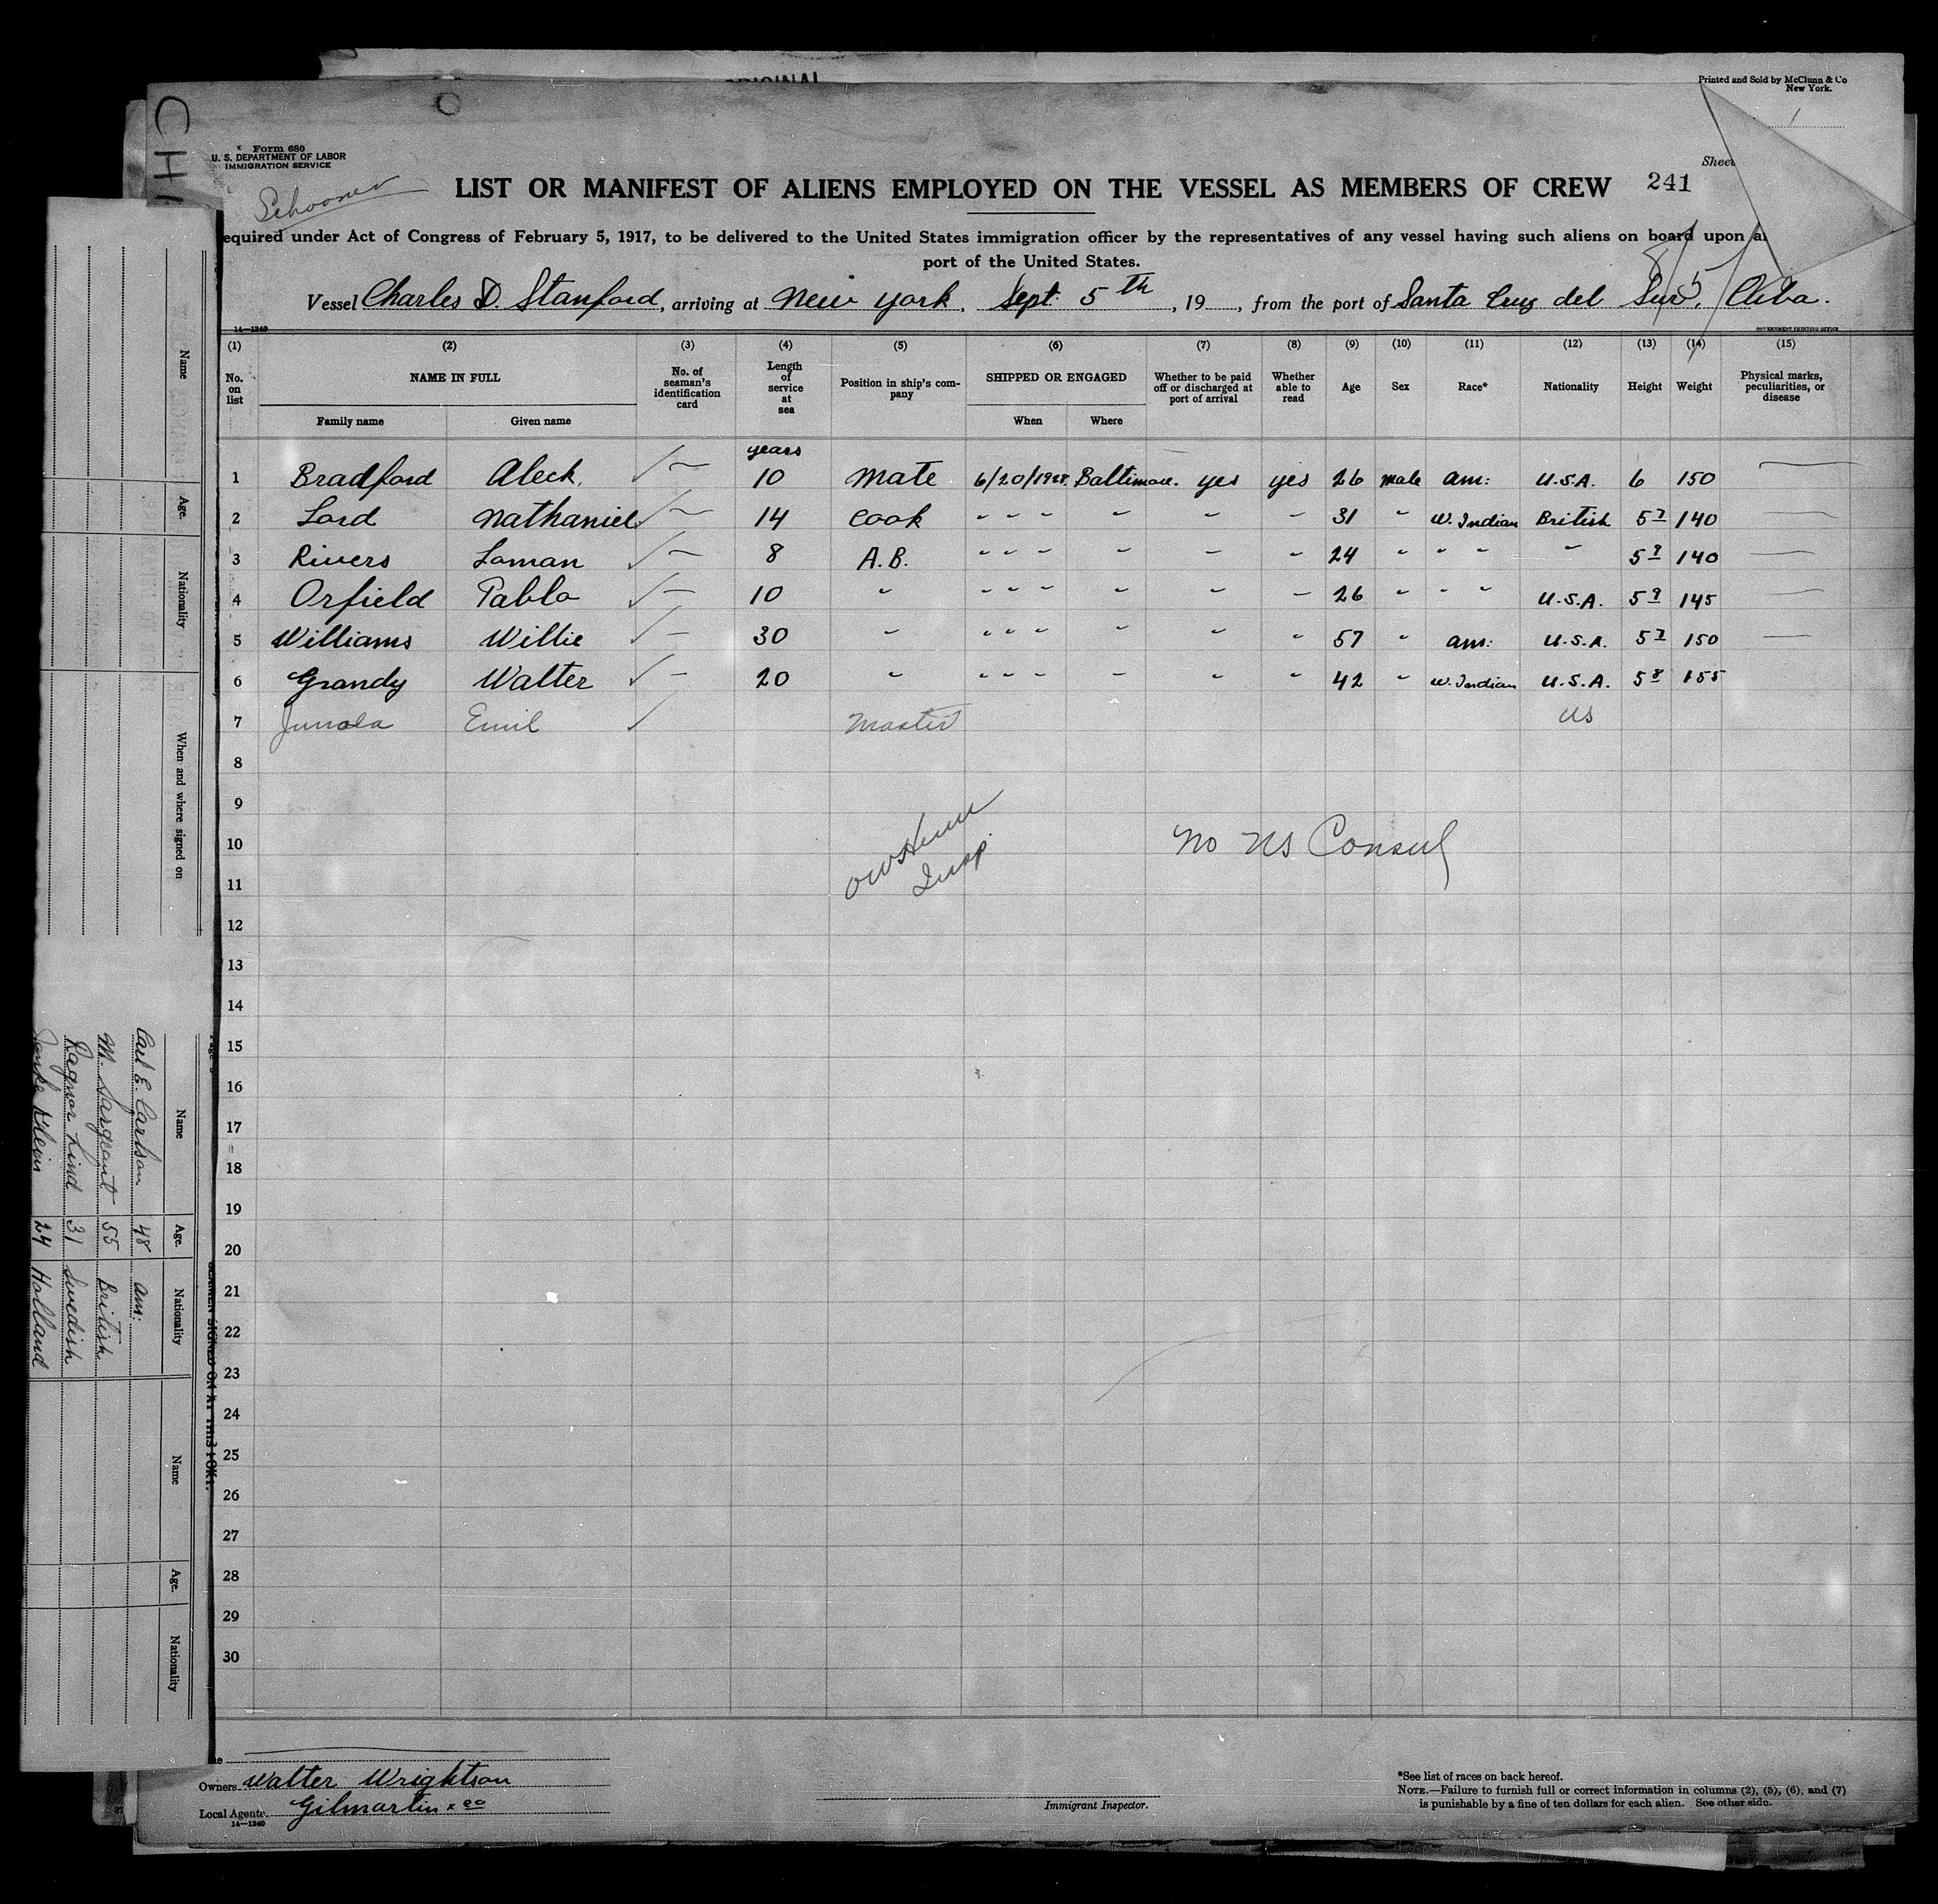 ORIGINAL
Printed and Sold by McClunn & Co
New York.
CHA
Form 680
U. S. DEPARTMENT OF LABOR
IMMIGRATION SERVICE
Sheet
Schooner
LIST OR MANIFEST OF ALIENS EMPLOYED ON THE VESSEL AS MEMBERS OF CREW 241
equired under Act of Congress of February 5, 1917, to be delivered to the United States immigration officer by the representatives of any vessel having such aliens on board upon a
port of the United States.
Vessel Charles D. Stanford, arriving at New York, Sept. 5th, 19, from the port of Santa Cruz del Sur, Cuba.
14—1240 GOVERNMENT PRINTING OFFICE
(1) (2) (3) (4) (5) (6) (7) (8) (9) (10) (11) (12) (13) (14) (15)
No. on list NAME IN FULL No. of seaman's identification card Length of service at sea Position in ship's company SHIPPED OR ENGAGED Whether to be paid off or discharged at port of arrival Whether able to read Age Sex Race* Nationality Height Weight Physical marks, peculiarities, or disease
Family name Given name When Where
years
1 Bradford Aleck. ✓ ~ 10 Mate 6/20/1928. Baltimore. yes yes 26 male am: U.S.A. 6 150 —
2 Lord Nathaniel ✓ ~ 14 Cook " " " " " " 31 " W. Indian British 5 7 140 —
3 Rivers Loman ✓ ~ 8 A.B. " " " " " " 24 " " " " 5 9 140 —
4 Orfield Pablo ✓ — 10 " " " " " " " 26 " " " U.S.A. 5 9 145 —
5 Williams Willie ✓ — 30 " " " " " " " 57 " am: U.S.A. 5 7 150 —
6 Grandy Walter ✓ - 20 " " " " " " " 42 " W. Indian U.S.A. 5 8 155
7 Junola Emil ✓ Master US
8
9
10 No US Consul
Insp.
11
12
13
14
15
16
17
18
19
20
21
22
23
24
25
26
27
28
29
30
Owners Walter Wrightson
Local Agents Gilmartin & Co
14—1240
Immigrant Inspector.
*See list of races on back hereof.
NOTE.—Failure to furnish full or correct information in columns (2), (5), (6), and (7)
is punishable by a fine of ten dollars for each alien. See other side.
Name Age. Nationality When and where signed on
Name Age. Nationality
Carl E. Carlson 48 am:
M. Sargeant 55 British
Ragnar Lind 31 Swedish
Klein 24 Holland
Name Age. Nationality
SEAMEN SIGNED ON AT THIS PORT.